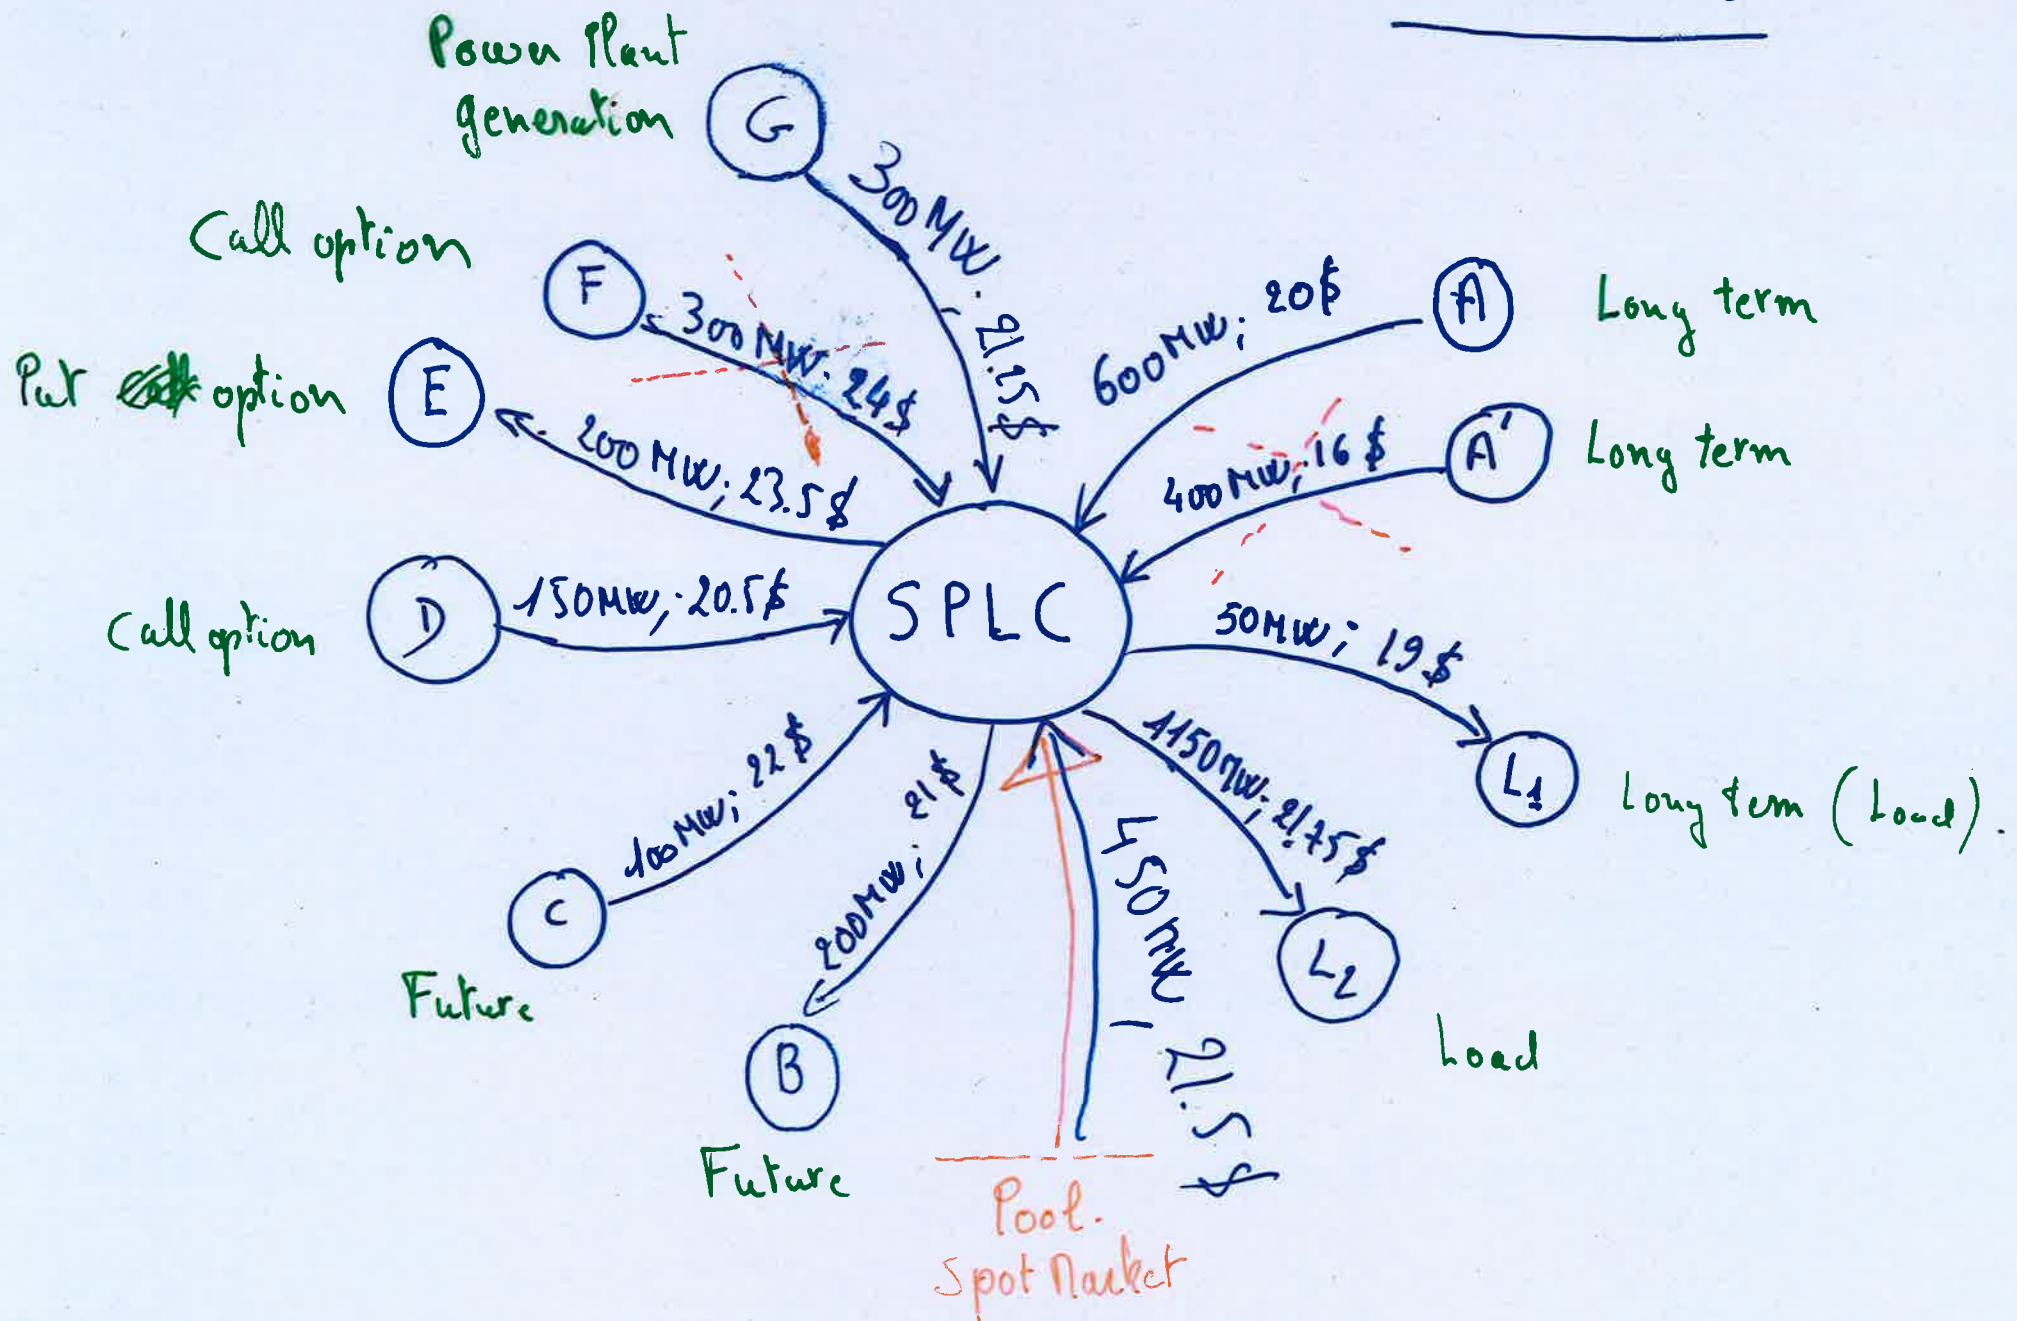 Power Plant
generation
G
300MW. 21.25$
Call option
F
300 MW. 24$
Put option
E
200 MW; 23.5$
Call option
D
150MW; 20.5$
SPLC
600MW; 20$
A
Long term
400MW; 16$
A'
Long term
50MW; 19$
L1
Long term (Load).
1150MW; 21.75$
L2
Load
100MW; 22$
C
Future
200MW; 21$
B
Future
450MW, 21.5$
Pool.
Spot Market